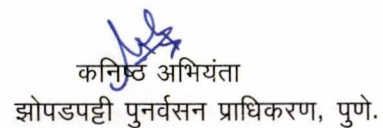 कनिष्ठ अभियंता
झोपडपट्टी पुनर्वसन प्राधिकरण, पुणे.